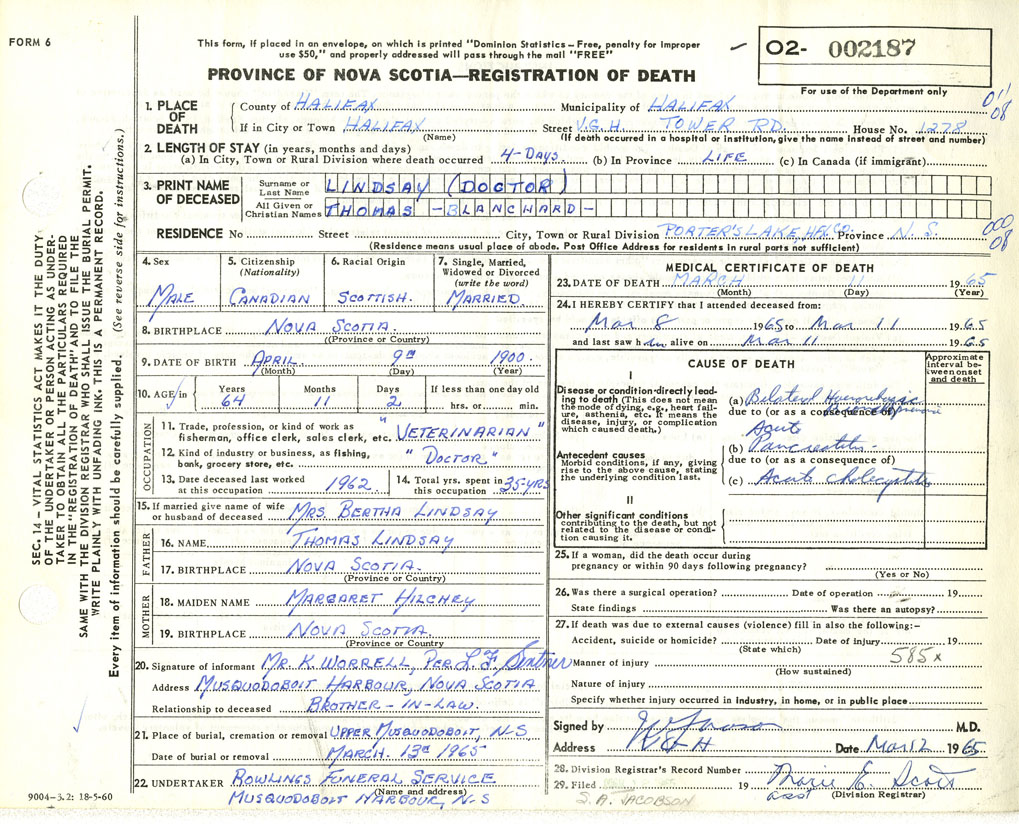 FORM 6
This form, if placed in an envelope, on which is printed "Dominion Statistics – Free, penalty for improper
use $50," and properly addressed will pass through the mail "FREE"
PROVINCE OF NOVA SCOTIA—REGISTRATION OF DEATH
02- 002187
For use of the Department only
011
08
1. PLACE OF DEATH
County of HALIFAX Municipality of HALIFAX
If in City or Town HALIFAX Street V.G.H. TOWER RD. House No. 1278
(Name) (If death occurred in a hospital or institution, give the name instead of street and number)
2. LENGTH OF STAY (in years, months and days)
(a) In City, Town or Rural Division where death occurred 4-DAYS. (b) In Province LIFE (c) In Canada (if immigrant)
3. PRINT NAME OF DECEASED
Surname or Last Name LINDSAY (DOCTOR)
All Given or Christian Names THOMAS -BLANCHARD-
RESIDENCE No Street City, Town or Rural Division PORTER'S LAKE, HFX.CO. Province N.S.
(Residence means usual place of abode. Post Office Address for residents in rural parts not sufficient)
000
08
4. Sex
MALE
5. Citizenship
(Nationality)
CANADIAN
6. Racial Origin
SCOTTISH.
7. Single, Married,
Widowed or Divorced
(write the word)
MARRIED
8. BIRTHPLACE NOVA SCOTIA.
(Province or Country)
9. DATE OF BIRTH APRIL 9th 1900.
(Month) (Day) (Year)
10. AGE in
Years Months Days If less than one day old
64 11 2 hrs. or min.
OCCUPATION
11. Trade, profession, or kind of work as
fisherman, office clerk, sales clerk, etc. "VETERINARIAN"
12. Kind of industry or business, as fishing,
bank, grocery store, etc. "DOCTOR"
13. Date deceased last worked
at this occupation 1962
14. Total yrs. spent in
this occupation 35-YRS
15. If married give name of wife
or husband of deceased MRS. BERTHA LINDSAY
FATHER
16. NAME THOMAS LINDSAY
17. BIRTHPLACE NOVA SCOTIA.
(Province or Country)
MOTHER
18. MAIDEN NAME MARGARET HILCHEY
19. BIRTHPLACE NOVA SCOTIA.
(Province or Country
20. Signature of informant MR. K. WORRELL, PER L. F.
Address MUSQUODOBOIT HARBOUR, NOVA SCOTIA
Relationship to deceased BROTHER-IN-LAW.
21. Place of burial, cremation or removal UPPER MUSQUODOBOIT, N-S
Date of burial or removal MARCH. 13th 1965
22. UNDERTAKER ROWLINGS FUNERAL SERVICE
(Name and address)
MUSQUODOBOIT HARBOUR, N-S
MEDICAL CERTIFICATE OF DEATH
23. DATE OF DEATH MARCH 11 1965
(Month) (Day) (Year)
24. I HEREBY CERTIFY that I attended deceased from:
Mar 8 1965 to Mar 11 1965
and last saw him alive on Mar 11 1965
CAUSE OF DEATH
Approximate interval between onset and death
I
Disease or condition directly leading to death (This does not mean the mode of dying, e.g., heart failure, asthenia, etc. It means the disease, injury, or complication which caused death.)
(a) Bilateral Hemorrhagic Bronchopneumonia
due to (or as a consequence of)
Acute
(b) Pancreatitis
due to (or as a consequence of)
Antecedent causes
Morbid conditions, if any, giving rise to the above cause, stating the underlying condition last.
(c) Acute cholecystitis
II
Other significant conditions
contributing to the death, but not related to the disease or condition causing it.
25. If a woman, did the death occur during
pregnancy or within 90 days following pregnancy?
(Yes or No)
26. Was there a surgical operation? Date of operation 19
State findings Was there an autopsy?
27. If death was due to external causes (violence) fill in also the following:-
Accident, suicide or homicide? Date of injury 19
(State which)
585x
Manner of injury
(How sustained)
Nature of injury
Specify whether injury occurred in industry, in home, or in public place
Signed by M.D.
Address V G H Date Mar 12 1965
28. Division Registrar's Record Number
29. Filed 19 Marie E. Scott
asst (Division Registrar)
S. A. JACOBSON
9004-3.2: 18-5-60
SEC. 14 – VITAL STATISTICS ACT MAKES IT THE DUTY
OF THE UNDERTAKER OR PERSON ACTING AS UNDER-
TAKER TO OBTAIN ALL THE PARTICULARS REQUIRED
IN THE "REGISTRATION OF DEATH" AND TO FILE THE
SAME WITH THE DIVISION REGISTRAR WHO SHALL ISSUE THE BURIAL PERMIT.
WRITE PLAINLY WITH UNFADING INK. THIS IS A PERMANENT RECORD.
Every item of information should be carefully supplied. (See reverse side for instructions.)